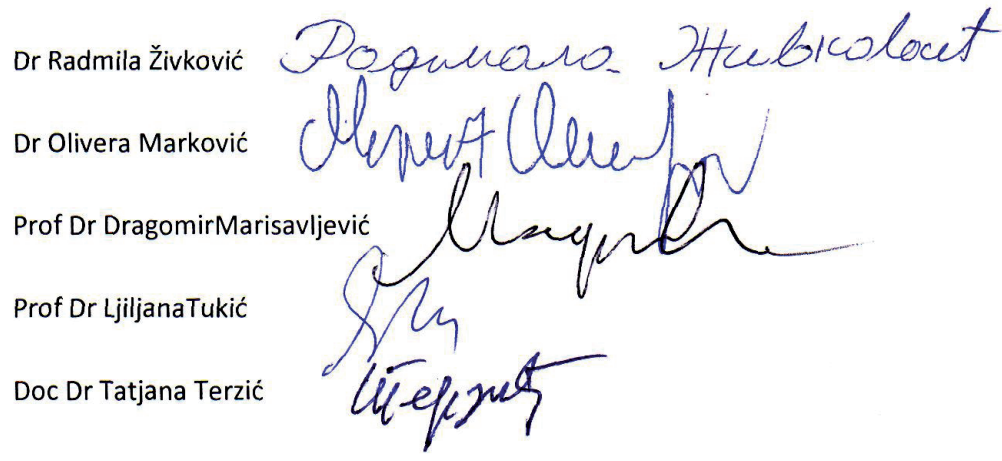 Dr Radmila Živković Радмила Живковић
Dr Olivera Marković
Prof Dr DragomirMarisavljević
Prof Dr LjiljanaTukić
Doc Dr Tatjana Terzić Терзић